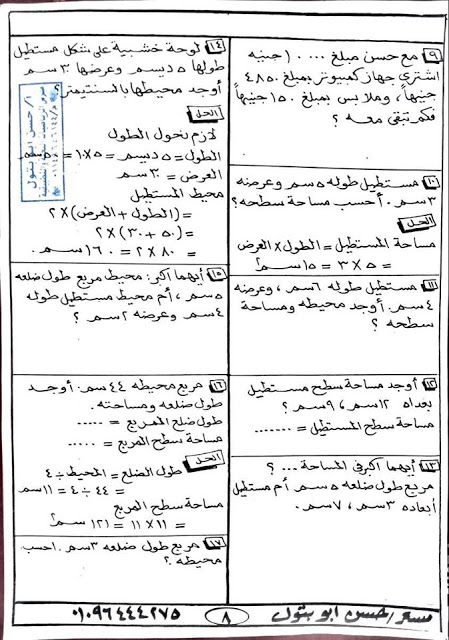 ٩ مع حسن مبلغ ١٠٠٠٠ جنيه
اشترى جهاز كمبيوتر بمبلغ ٤٨٥٠
جنيهاً، وملابس بمبلغ ١٥٠ جنيهاً
فكم تبقى معه ؟
١٠ مستطيل طوله ٥ سم وعرضه
٣ سم . أحسب مساحة سطحه؟
الحل
مساحة المستطيل = الطول × العرض
= ٥ × ٣ = ١٥ سم٢
١١ مستطيل طوله ٦ سم ، وعرضه
٤ سم . أوجد محيطه ومساحة
سطحه ؟
١٢ أوجد مساحة سطح مستطيل
بعداه ١٢ سم ، ٩ سم ؟
مساحة سطح المستطيل = .......
١٣ أيهما أكبر في المساحة ... ؟
مربع طول ضلعه ٥ سم أم مستطيل
أبعاده ٣ سم ، ٧ سم .
١٤ لوحة خشبية على شكل مستطيل
طولها ٥ ديسم وعرضها ٣٠ سم
أوجد محيطها بالسنتيمتر؟
الحل
لازم نحول الطول
الطول = ٥ ديسم = ٥ × ١٠ = ٥٠ سم
العرض = ٣٠ سم
محيط المستطيل
= (الطول + العرض) × ٢
= (٥٠ + ٣٠) × ٢
= ٨٠ × ٢ = ١٦٠ سم .
١٥ أيهما أكبر : محيط مربع طول ضلعه
٥ سم ، أم محيط مستطيل طوله
٤ سم وعرضه ٢ سم ؟
١٦ مربع محيطه ٤٤ سم . أوجد
طول ضلعه ومساحته .
طول ضلع المربع = .....
مساحة سطح المربع = .....
الحل
طول الضلع = المحيط ÷ ٤
= ٤٤ ÷ ٤ = ١١ سم
مساحة سطح المربع
= ١١ × ١١ = ١٢١ سم٢
١٧ مربع طول ضلعه ٣ سم . احسب
محيطه ؟
مستر / حسن ابو بتول
٨
٠١٠٩٦٤٤٤٢٧٥